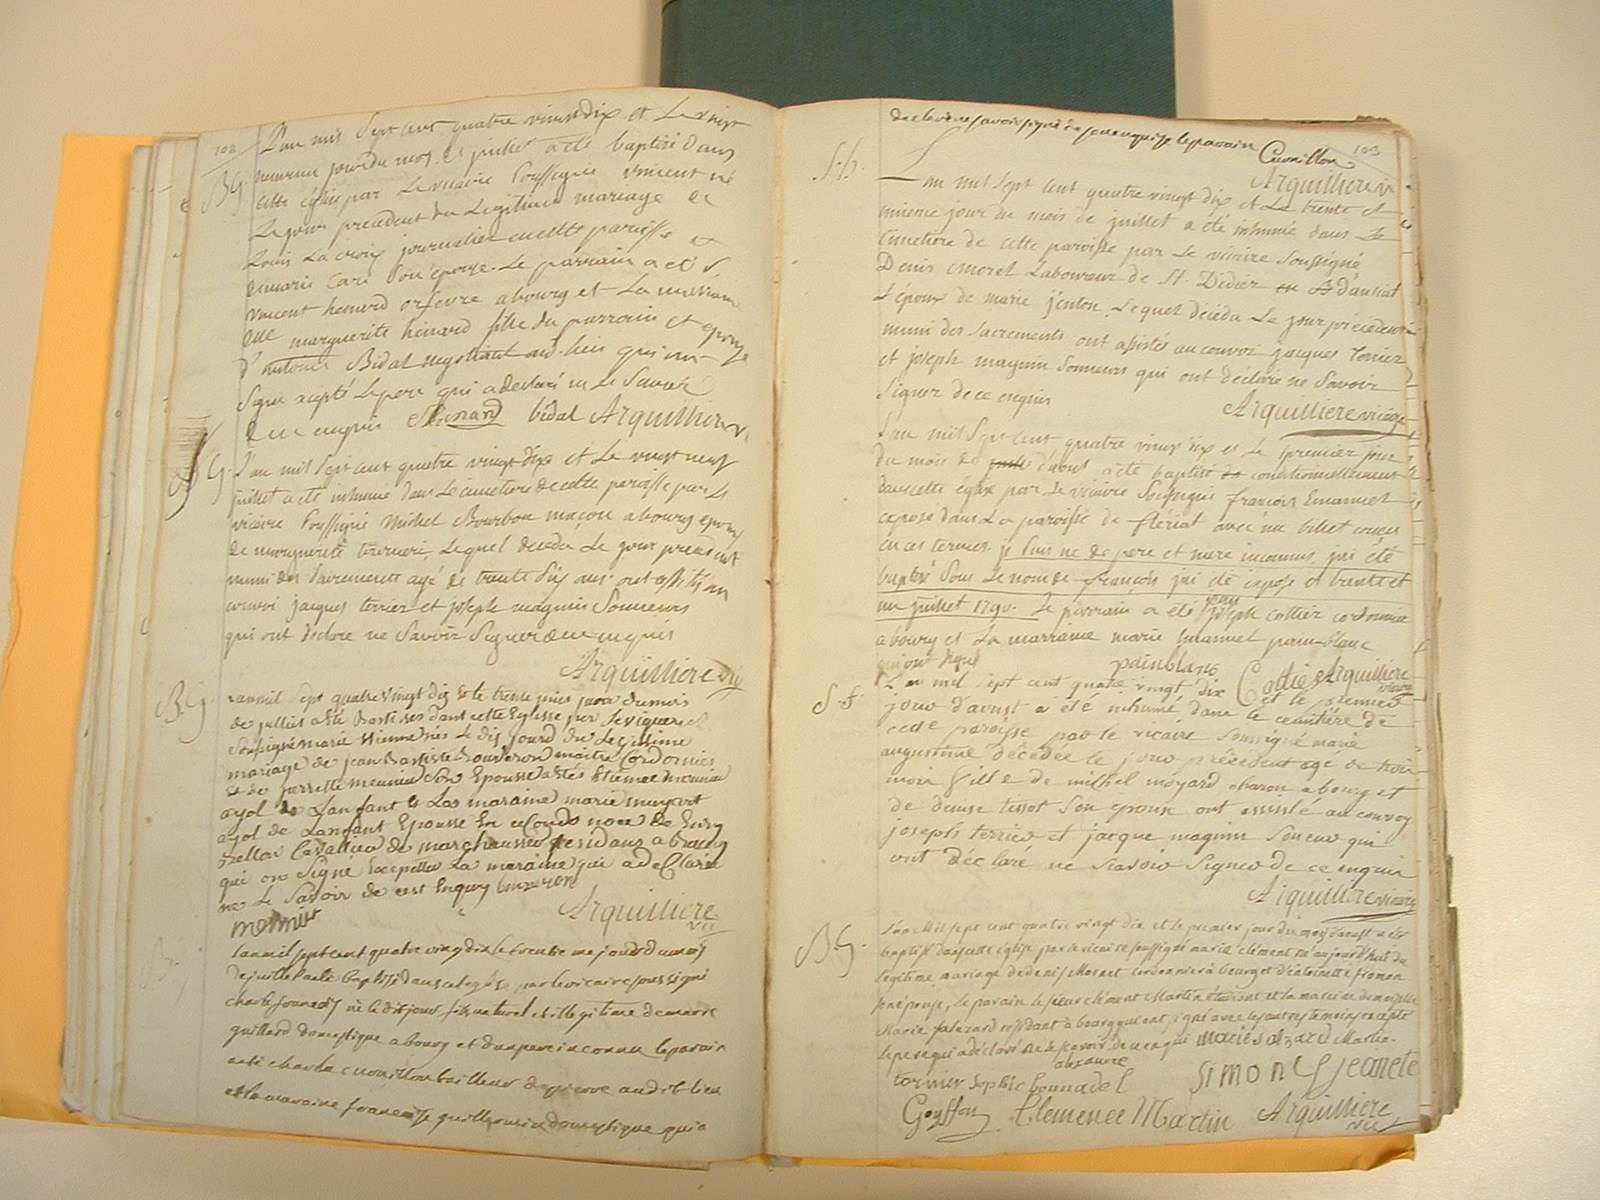 102
L'an mil sept cent quatre vingt dix et Le vingt
B G
neuvieme jour du mois de juillet a été baptisé dans
cette église par Le vicaire soussigné vincent né
Le jour precedent du Legitime mariage de
Louis La croix journalier en cette paroisse et
marie Caré son épouse. Le parrain a été S.
vincent henard orfevre a bourg et La marraine
marguerite henard fille du parrain et epouse
d'antoine Bidal negotiant aud. lieu qui ont
signé excepté Le pere qui a declaré ne Le Savoir
de ce enquis henard bidal Arquilliere v.
S G.
L'an mil Sept cent quatre vingt dix et Le vingt neuf
juillet a été inhumé dans Le cimetiere de cette paroisse par Le
vicaire soussigné Michel Bourbon maçon a bourg epoux
de marguerite Lequel deceda Le jour precedent
muni des Sacrements agé de trente six ans ont assisté au
convoi jacques terrier et joseph magnin Sonneurs
qui ont declaré ne Savoir Signer de ce enquis
Arquilliere vic
B. G.
Lanmil sept quatre vingt dix et le trente jour du mois
de juillet a été Baptisés dans cette Eglise par le
soussigné marie née Le dis jourd du Legitime
mariage de jean Batiste maitre Cordonnier
et de pierrette meunier son Epousse a étés Etienne meunier
ayol de Lanfant et Las maraine marie
ayol de Lanfant Epousse En seConde noce de
Cavallier de marechaussée residans a bourg
qui on Signé Excepttes La maraine qui a deClaré
ne Le Savoir de cest Enquis
meunier Arquilliere
vic
Lanmil sept cent quatre vingt dix le trente me jour du mois
de juillet a été baptisé dans cet eglise par le vicaire soussigné
charle francois né le dit jour fils naturel et illegitime de marie
guillard domestique a bourg et d'un pere inconnu le parain
a été charle cuvillon tailleur de pierre audit lieu
et la maraine francoise domestique qui a
declaré ne savoir signé de ce enquise le parain Cuvillon
103
Arquilliere v.
S. h.
L'an mil Sept cent quatre vingt dix et Le trente et
unieme jour du mois de juillet a été inhumé dans Le
cimetiere de cette paroisse par Le vicaire Soussigné
Denis Morel Laboureur de St. Didier d'aussiat
Lépoux de marie jenton, Lequel déceda Le jour précedent
muni des sacrements ont assistés au convoi jacques terrier
et joseph magnin Sonneurs qui ont déclaré ne Savoir
Signer de ce enquis Arquilliere vicaire
L'an mil Sept cent quatre vingt dix et Le premier jour
du mois de d'aout a été baptisé conditionnellement
dans cette eglise par Le vicaire Soussigné francois Emanuel
exposé dans La paroisse de fleriat avec un billet concu
en ces termes. je suis né de pere et mere inconnus, jai été
baptisé sous Le nom de francois jai été exposé Le trente et
un juillet 1790. Le parrain a été jean joseph cottier cordonnier
a bourg et La marraine marie Emanuel pain-blanc
qui ont signé painblanc Cotié Arquilliere
vicaire
S. f.
L'an mil sept cent quatre vingt dix et le premier
jour d'aoust a été inhumé dans le cemitiere de
cette paroisse par le vicaire soussigné marie
augustine décédée le jour précédent agé de
mois fille de michel moyard charon a bourg et
de denise tissot son epouse ont assisté au convoy
joseph terrier et jacque magnin soneur qui
ont déclaré ne scavoir signer de ce enquis
Arquilliere vicaire
B G.
L'an Mil sept cent quatre vingt dix et le premier jour du moy d'aoust a été
baptisé dans cette eglise par le vicaire soussigné marie clement né aujourd'huit du
legitime mariage de denis Moract cordonnier à bourg et d'etoinette fromon
son epouse, le parain le sieur clement Martin étudiant et la maraine demoiselle
Marie falazard residant à bourg qui ont signé avec les autres temoins excepté
le pere qui a déclaré ne le scavoir de ce enqui marie Salazard Martin.
terrier Sophie bonnadel Simon G jeanete
Goyffon Clemence Martin Arquilliere
vic